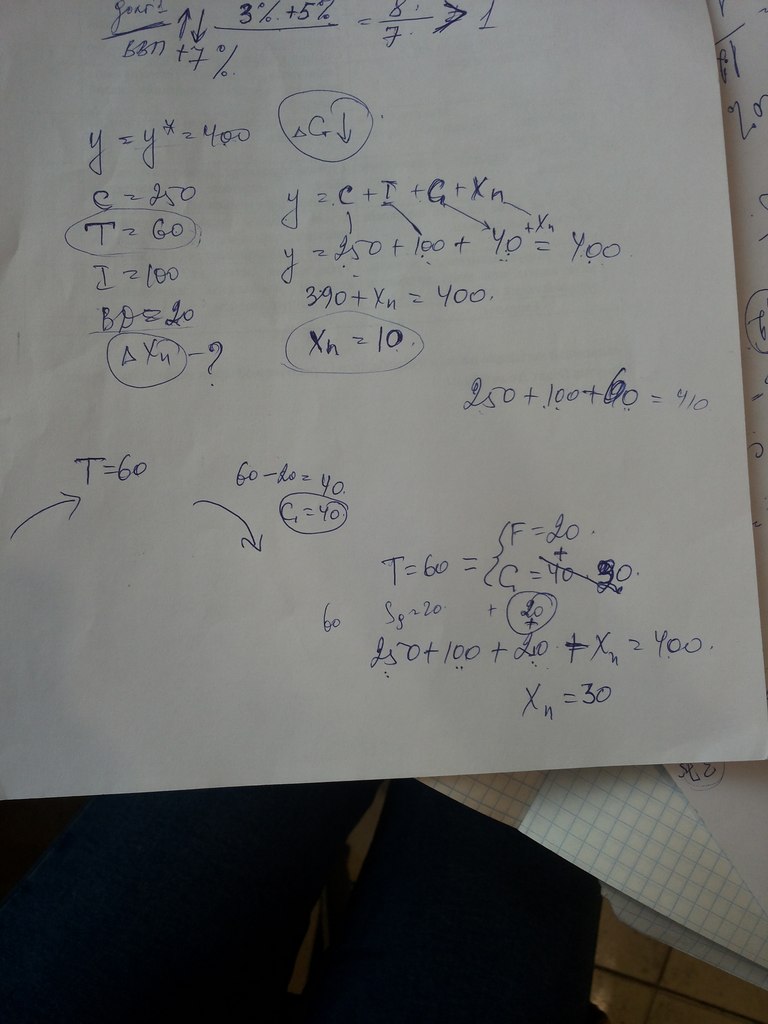 долг ↑↓ 3% + 5% = 8 / 7 > 1
ВВП +7%
y = y* = 400
ΔG↓
C = 250
y = C + I + G + Xn
T = 60
y = 250 + 100 + 40 + Xn = 400
I = 100
390 + Xn = 400.
BD = 20
ΔXn - ?
Xn = 10.
250 + 100 + 60 = 410
T = 60
60 - 20 = 40.
G = 40.
F = 20.
+
T = 60 = { G = 40 30.
60 Sg = 20 + 20
+
250 + 100 + 20 + Xn = 400.
Xn = 30